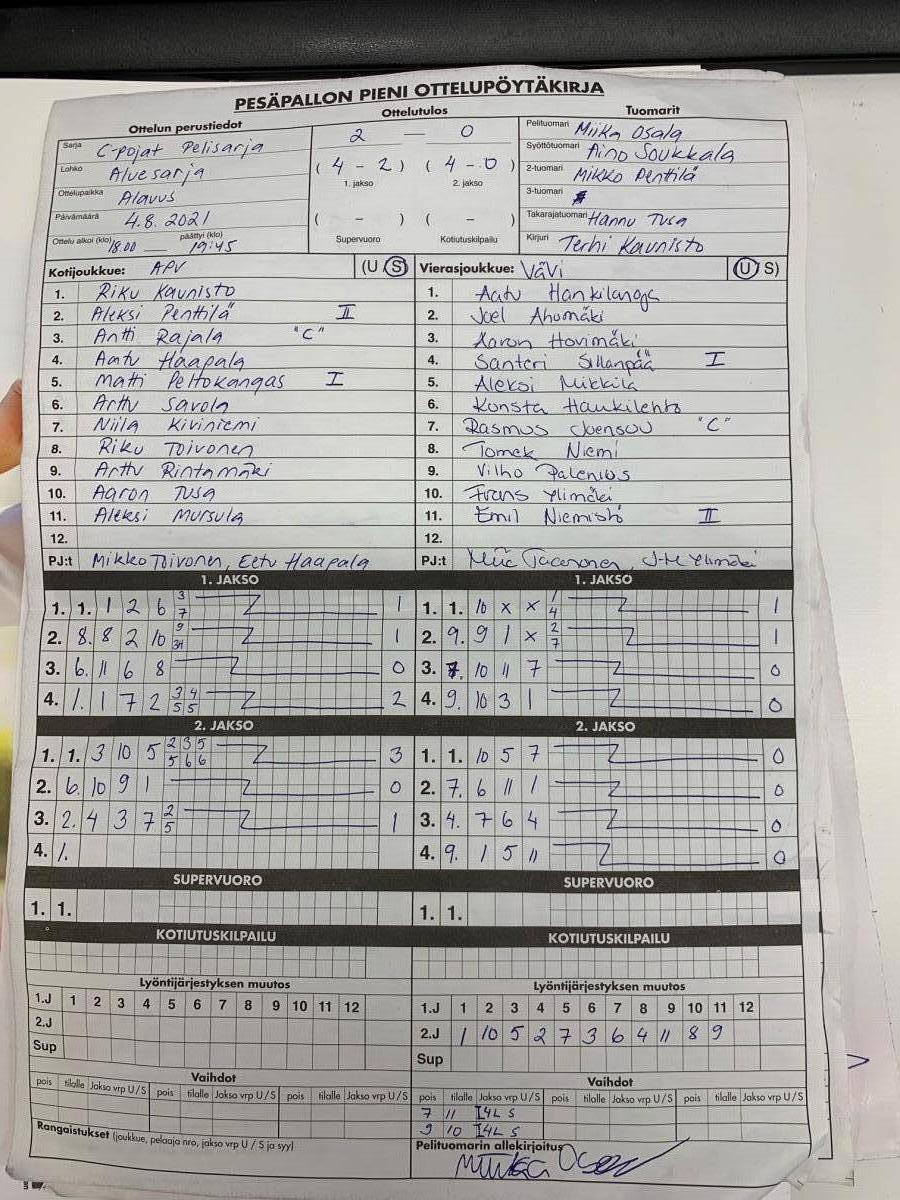 PESÄPALLON PIENI OTTELUPÖYTÄKIRJA
Ottelun perustiedot
Sarja C-pojat Pelisarja
Lohko Aluesarja
Ottelupaikka Alavus
Päivämäärä 4.8. 2021
Ottelu alkoi (klo) 18:00 päättyi (klo) 19:45
Ottelutulos
2 — 0
(4 - 2) (4 - 0)
1. jakso 2. jakso
( - ) ( - )
Supervuoro Kotiutuskilpailu
Tuomarit
Pelituomari Miika Osala
Syöttötuomari Aino Soukkala
2-tuomari Mikko Penttilä
3-tuomari
Takarajatuomari Hannu Tusa
Kirjuri Terhi Kaunisto
Kotijoukkue: APV (U S)
1. Riku Kaunisto
2. Aleksi Penttilä II
3. Antti Rajala "C"
4. Aatu Haapala
5. Matti Peltokangas I
6. Arttu Savola
7. Niila Kiviniemi
8. Riku Toivonen
9. Arttu Rintamäki
10. Aaron Tusa
11. Aleksi Mursula
12.
PJ:t Mikko Toivonen, Eetu Haapala
Vierasjoukkue: VäVi (U S)
1. Aatu Hankilanoja
2. Joel Ahomäki
3. Aaron Hovimäki
4. Santeri Sillanpää I
5. Aleksi Mikkilä
6. Konsta Haukilehto
7. Rasmus Joensuu "C"
8. Tomek Niemi
9. Vilho Palenius
10. Frans Ylimäki
11. Emil Niemistö II
12.
PJ:t J-M Ylimäki
1. JAKSO
1. 1. 1 2 6 3 7 1
2. 8. 8 2 10 9 1
3. 6. 11 6 8 0
4. 1. 1 7 2 3 4 5 5 2
2. JAKSO
1. 1. 3 10 5 2 3 5 5 6 6 3
2. 6. 10 9 1 0
3. 2. 4 3 7 2 5 1
4. 1.
SUPERVUORO
1. 1.
KOTIUTUSKILPAILU
Lyöntijärjestyksen muutos
1.J 1 2 3 4 5 6 7 8 9 10 11 12
2.J
Sup
Vaihdot
pois tilalle Jakso vrp U / S pois tilalle Jakso vrp U / S pois tilalle Jakso vrp U / S
Rangaistukset (joukkue, pelaaja nro, jakso vrp U / S ja syy)
1. JAKSO
1. 1. 10 x x 1 4 1
2. 9. 9 1 x 2 7 1
3. 7. 10 11 7 0
4. 9. 10 3 1 0
2. JAKSO
1. 1. 10 5 7 0
2. 7. 6 11 1 0
3. 4. 7 6 4 0
4. 9. 1 5 11 0
SUPERVUORO
1. 1.
KOTIUTUSKILPAILU
Lyöntijärjestyksen muutos
1.J 1 2 3 4 5 6 7 8 9 10 11 12
2.J 1 10 5 2 7 3 6 4 11 8 9
Sup
Vaihdot
pois tilalle Jakso vrp U / S pois tilalle Jakso vrp U / S pois tilalle Jakso vrp U / S
7 11 I4L S
9 10 I4L S
Pelituomarin allekirjoitus